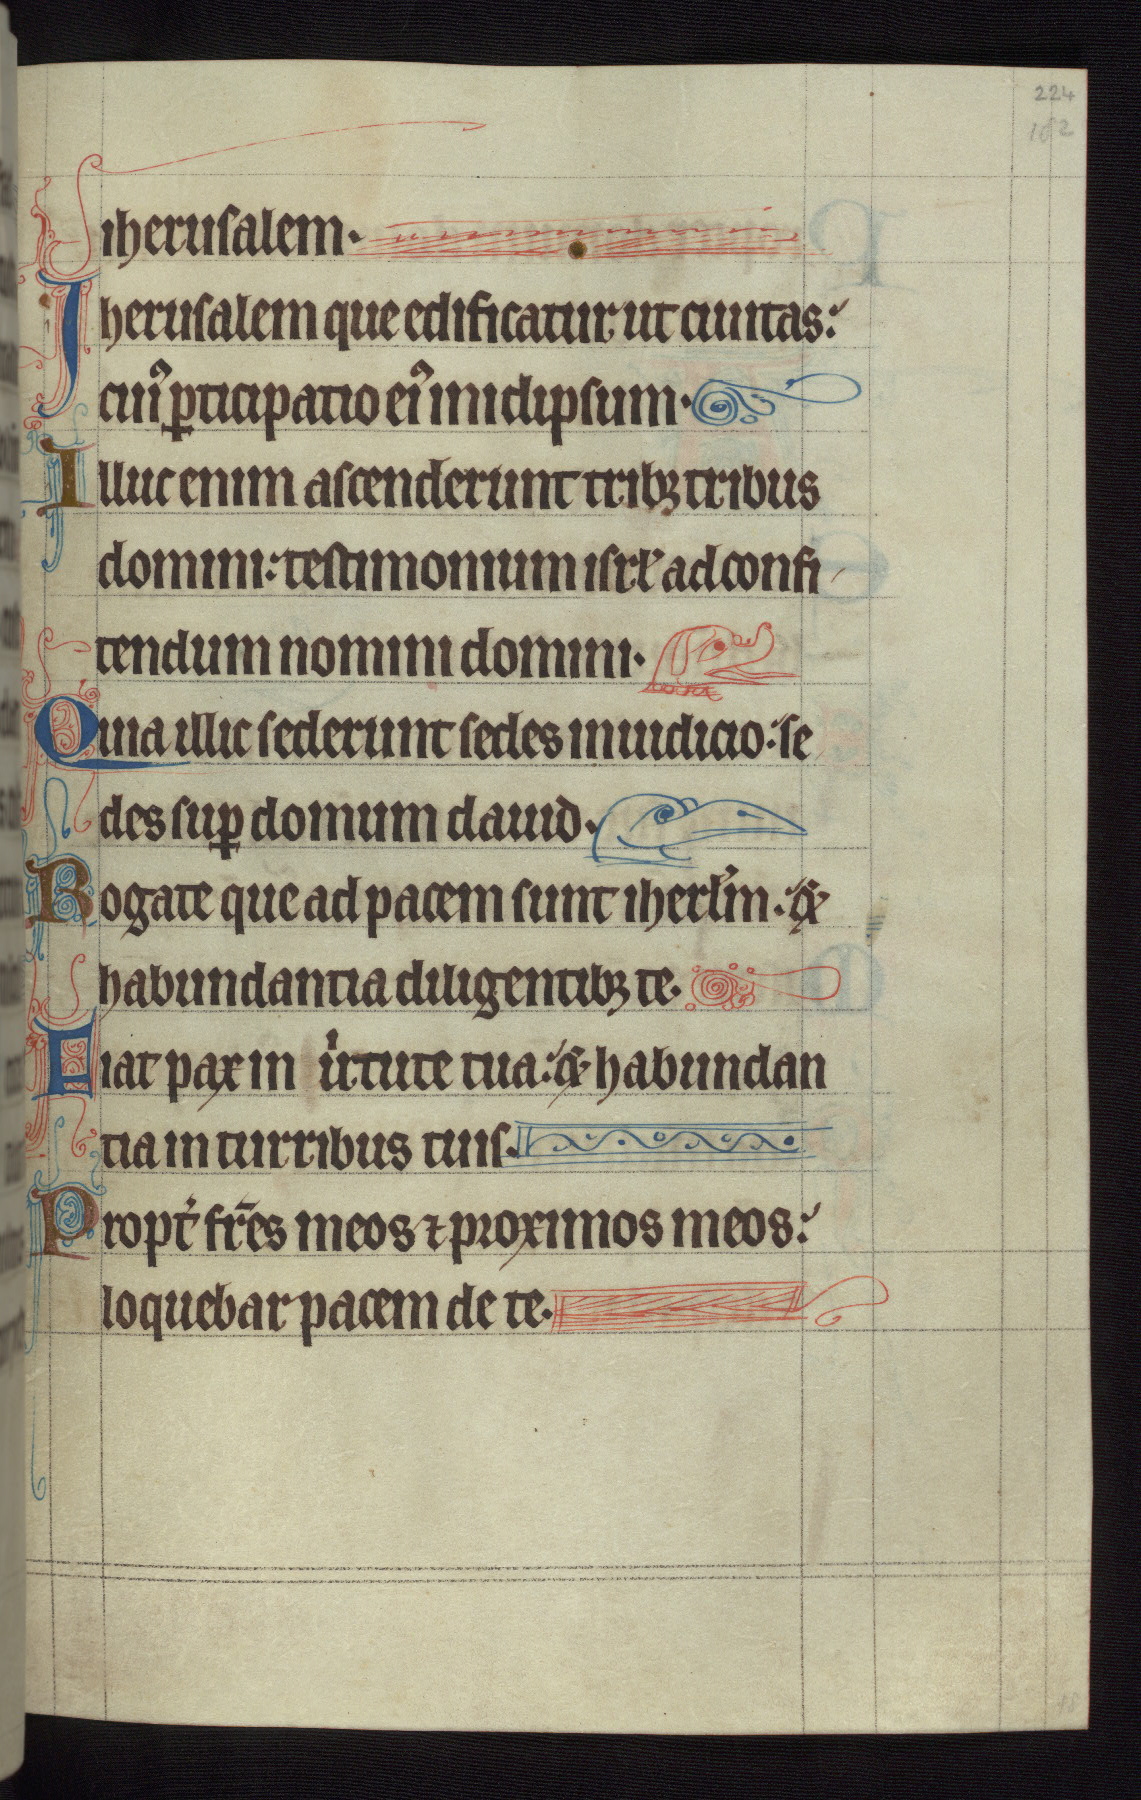 224
162
iherusalem.
Iherusalem que edificatur ut ciuitas:
cuiꝰ ꝑticipatio eiꝰ in idipsum.
Illuc enim ascenderunt tribꝫ tribus
domini: testimonium isrl̓ ad confi
tendum nomini domini.
Quia illic sederunt sedes in iudicio: se
des suꝑ domum dauid.
Rogate que ad pacem sunt iherl̓m: &
habundantia diligentibꝫ te.
Fiat pax in uͥrtute tua: & habundan
tia in turribus tuis.
Propt̓ fr̄es meos ⁊ proximos meos:
loquebar pacem de te.